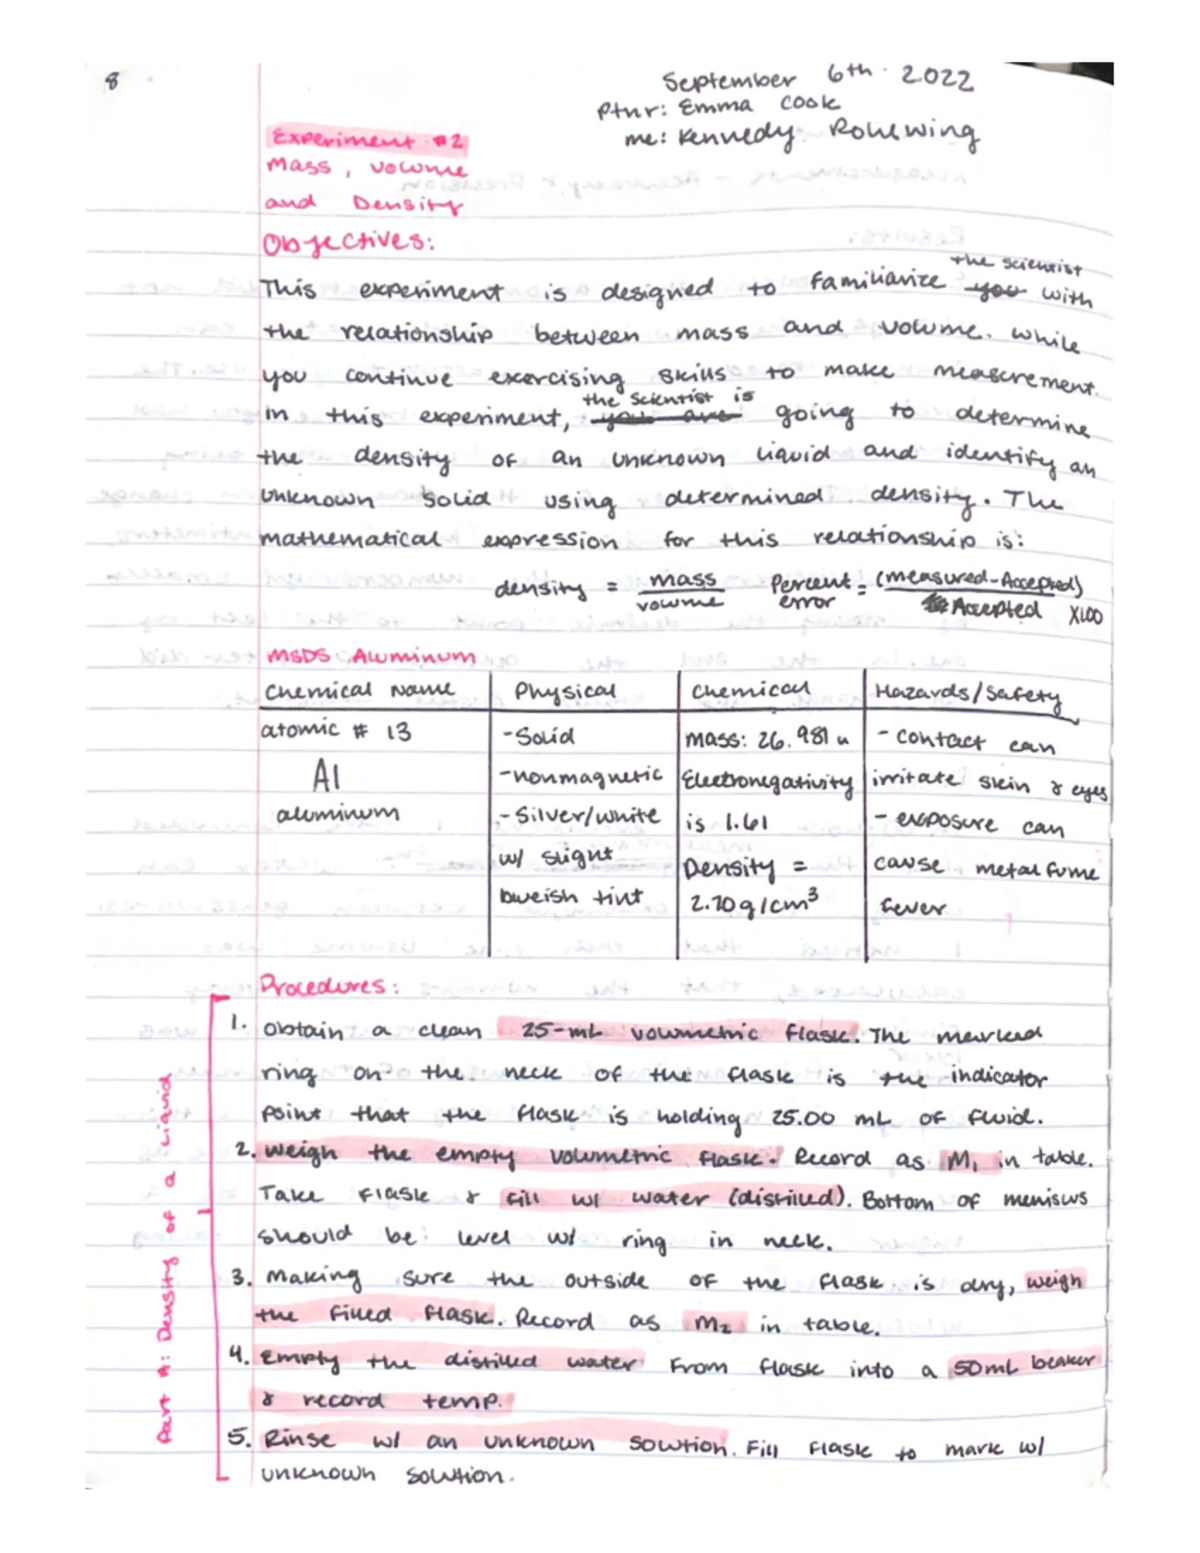 8
September 6th. 2022
Ptnr: Emma Cook
me: Kennedy Rohewing
Experiment #2
Mass, volume
and Density
Objectives:
This experiment is designed to familiarize the scientist you with
the relationship between mass and volume. While
you continue exercising skills to make measurement.
in this experiment, the scientist is you are going to determine
the density of an unknown liquid and identify an
unknown solid using determined density. The
mathematical expression for this relationship is:
density = mass / volume Percent error = (measured-Accepted) / Accepted X100
MSDS: Aluminum
Chemical Name Physical Chemical Hazards/Safety
atomic # 13 -Solid mass: 26.981 u - contact can
Al -nonmagnetic Electronegativity irritate skin & eyes
aluminum -Silver/white is 1.61 - exposure can
w/ slight Density = cause metal fume
blueish tint 2.70g/cm³ fever
Procedures:
Part A: Density of a Liquid
1. Obtain a clean 25-mL volumetric flask. The marked
ring on the neck of the flask is the indicator
point that the flask is holding 25.00 mL of fluid.
2. Weigh the empty volumetric flask. Record as M₁ in table.
Take flask & fill w/ water (distilled). Bottom of meniscus
should be level w/ ring in neck.
3. Making sure the outside of the flask is dry, weigh
the filled flask. Record as M₂ in table.
4. Empty the distilled water from flask into a 50mL beaker
& record temp.
5. Rinse w/ an unknown solution. Fill flask to mark w/
unknown solution.